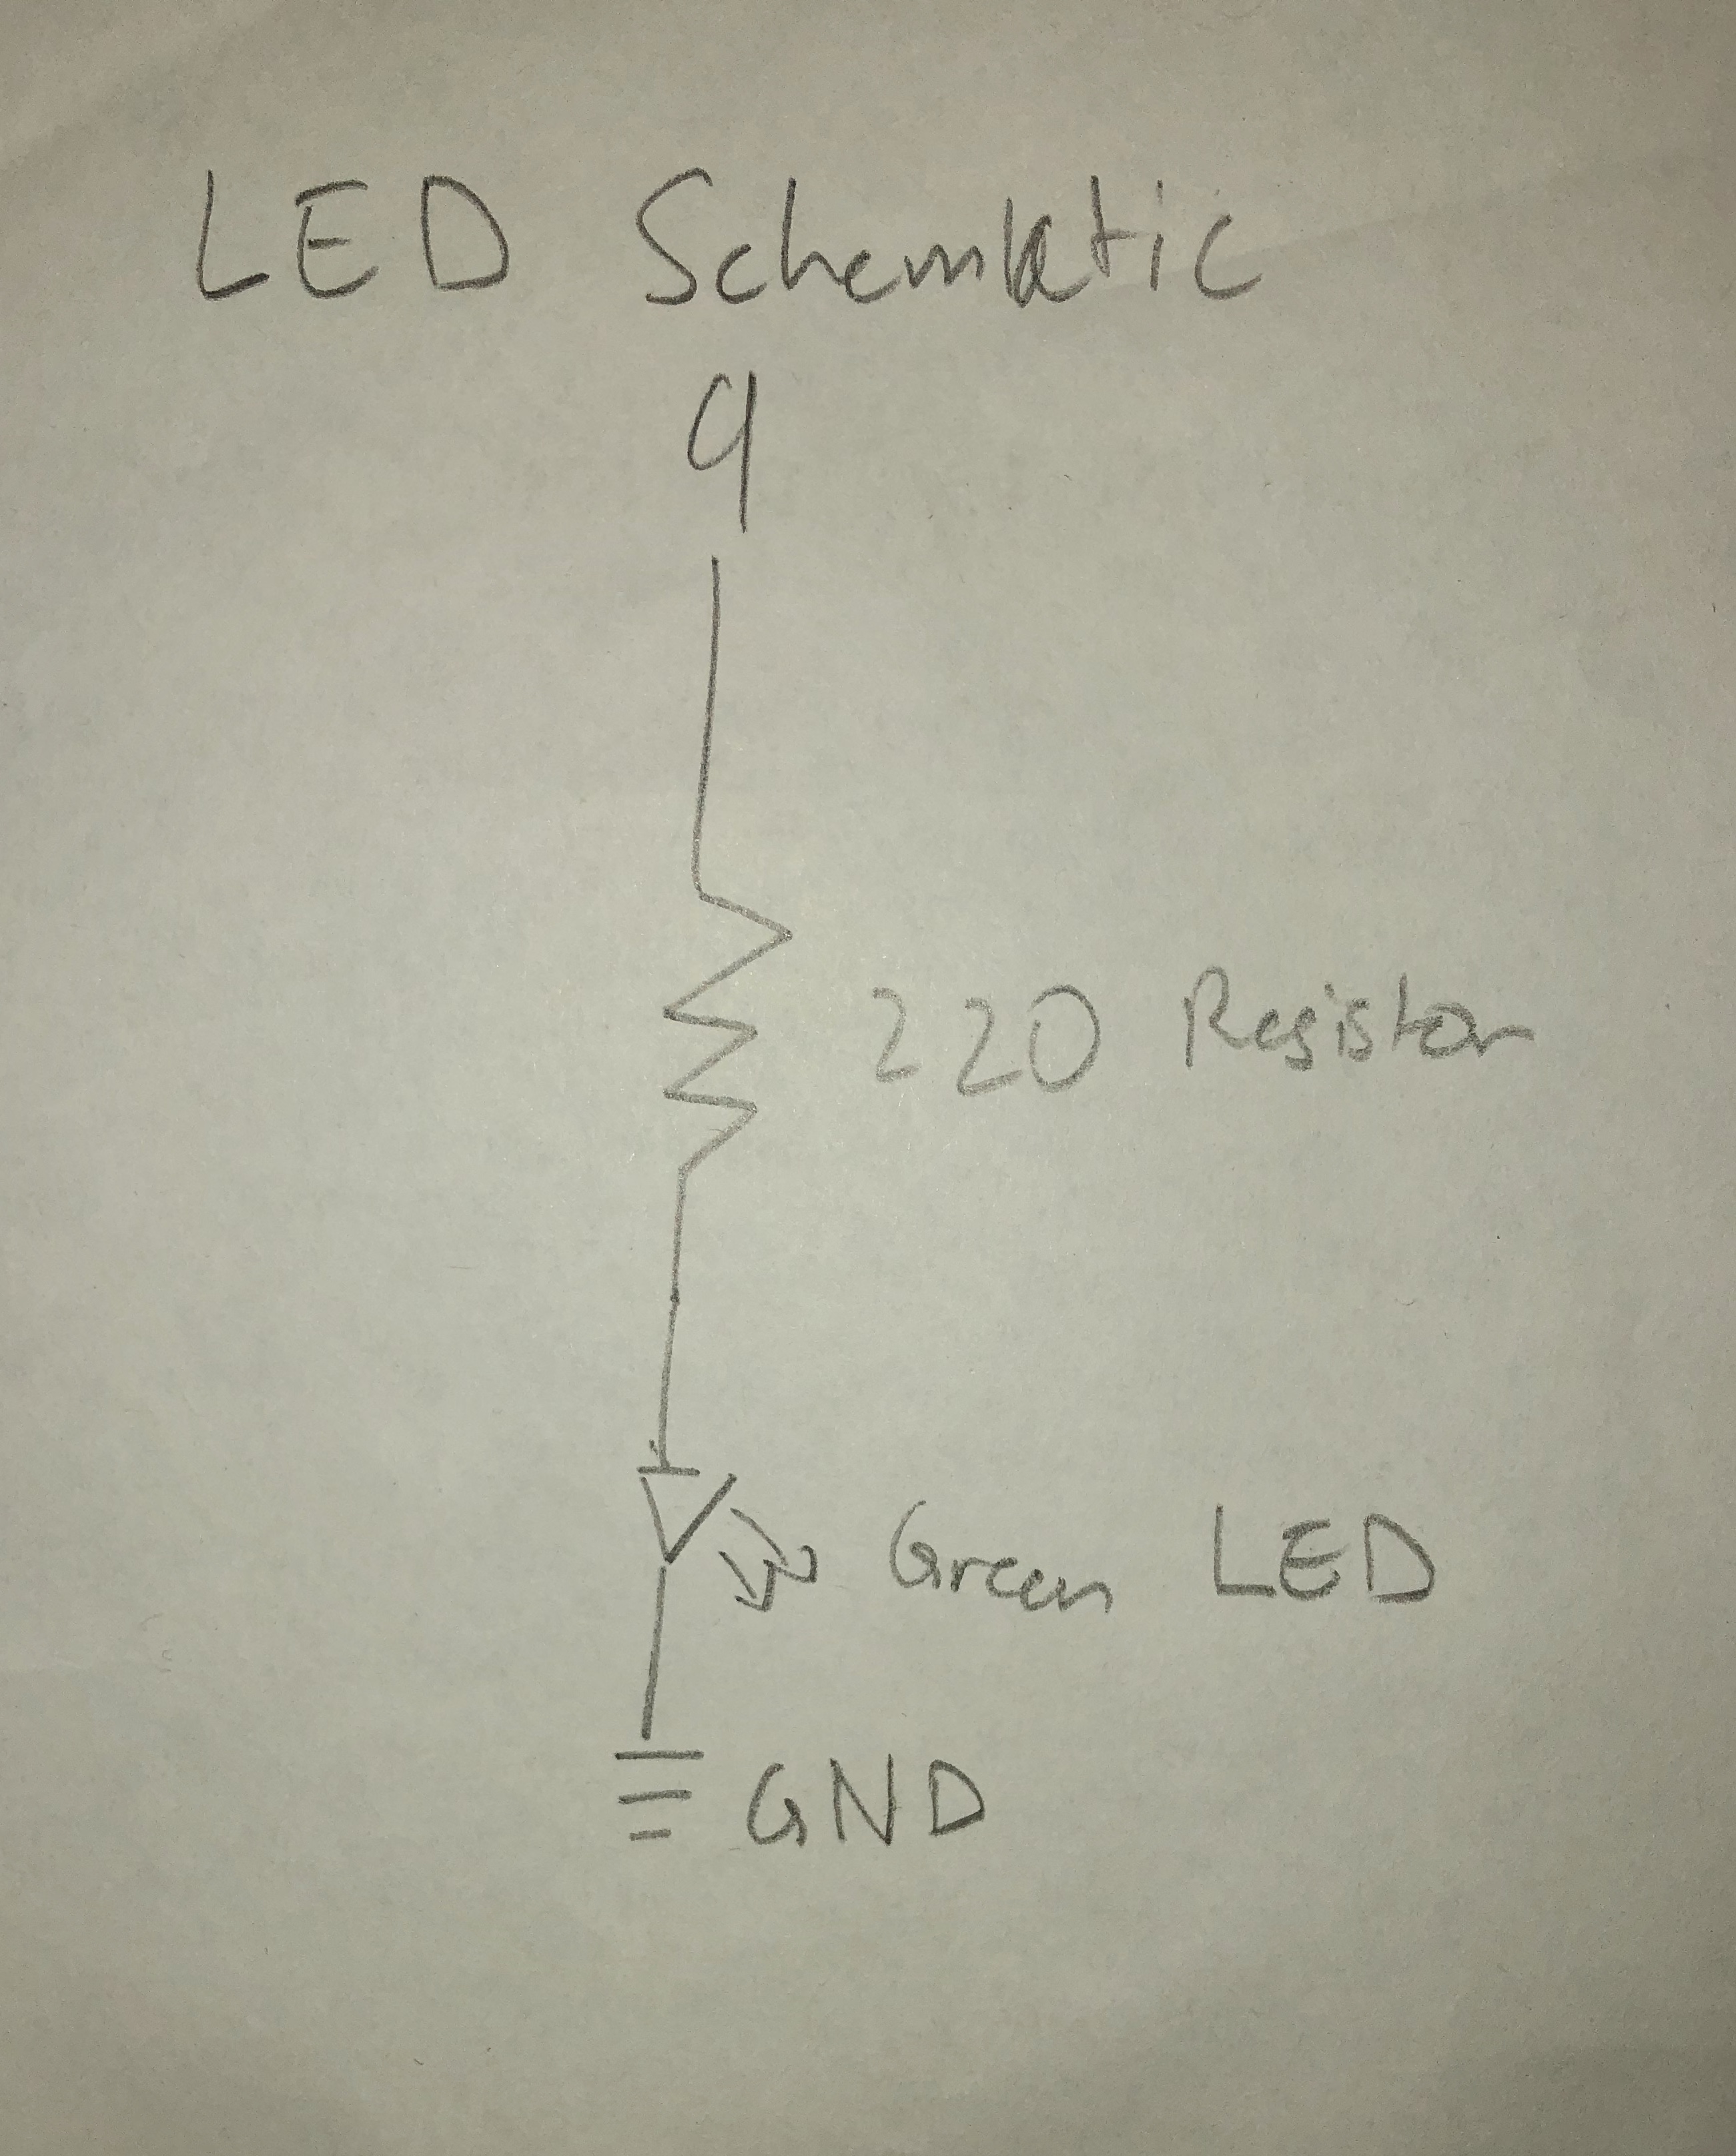 LED Schematic
9
220 Resistor
Green LED
GND